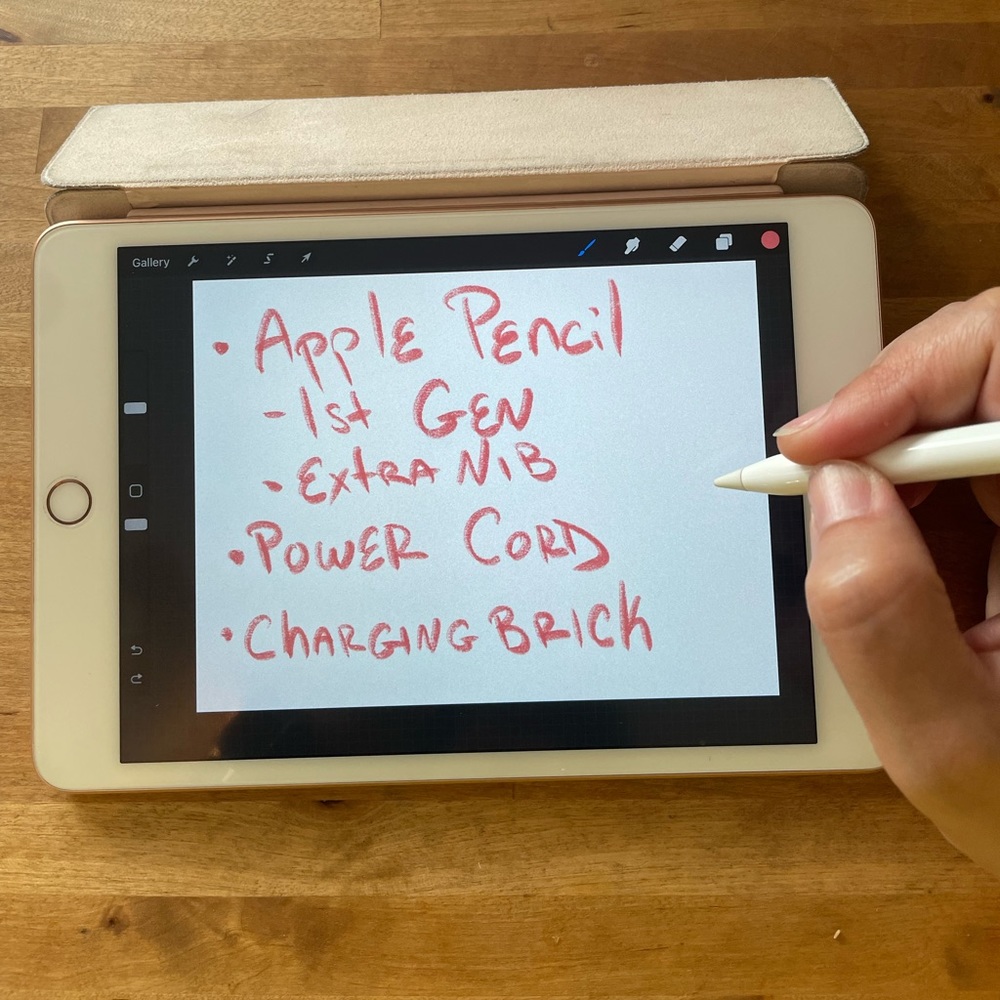 Gallery
• Apple Pencil
- 1st GEN
- ExtRA NiB
• PoWER CoRD
• ChARGING BRICK